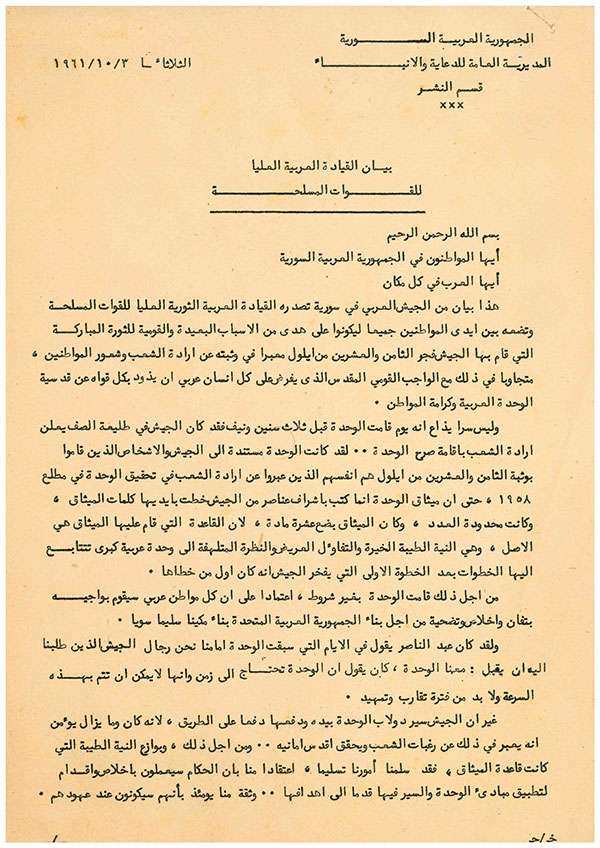 الجمهورية العربية الســـورية
المديرية العامة للدعاية والانبـــاء
الثلاثاء ١٩٦١/١٠/٣
قسم النشر
×××
بيـان القيادة العربية العليا
للقــوات المسلحــة
بسم الله الرحمن الرحيم
أيها المواطنون في الجمهورية العربية السورية
أيها العرب في كل مكان
هذا بيان من الجيش العربي في سورية تصدره القيادة العربية الثورية العليا للقوات المسلحة
وتضعه بين ايدى المواطنين جميعا ليكونوا على هدى من الاسباب البعيدة والقومية للثورة المباركة
التي قام بها الجيش فجر الثامن والعشرين من ايلول معبرا في وثبته عن ارادة الشعب وشعور المواطنين ،
متجاوبا في ذلك مع الواجب القومي المقدس الذى يفرض على كل انسان عربي ان يذود بكل قواه عن قدسية
الوحدة العربية وكرامة المواطن ٠
وليس سرا يذاع انه يوم قامت الوحدة قبل ثلاث سنين ونيف فقد كان الجيش في طليعة الصف يعلن
ارادة الشعب باقامة صرح الوحدة ٠٠ لقد كانت الوحدة مستندة الى الجيش والاشخاص الذين قاموا
بوثبة الثامن والعشرين من ايلول هم انفسهم الذين عبروا عن ارادة الشعب في تحقيق الوحدة في مطلع
١٩٥٨ ، حتى ان ميثاق الوحدة انما كتب باشراف عناصر من الجيش خطت بايديها كلمات الميثاق ،
وكانت محدودة العدد ، وكان الميثاق بضع عشرة مادة ، لان القاعدة التي قام عليها الميثاق هي
الاصل ، وهي النية الطيبة الخيرة والتفاؤل العريض والنظرة المتلهفة الى وحدة عربية كبرى تتتابـع
اليها الخطوات بعد الخطوة الاولى التي يفخر الجيش انه كان اول من خطاها ٠
من اجل ذلك قامت الوحدة بغير شروط ، اعتمادا على ان كل مواطن عربي سيقوم بواجبـه
بتفان واخلاص وتضحية من اجل بناء الجمهورية العربية المتحدة بناء مكينا سليما سويا ٠
ولقد كان عبد الناصر يقول في الايام التي سبقت الوحدة امامنا نحن رجال الجيش الذين طلبنا
اليه ان يقبل : معنا الوحدة ، كان يقول ان الوحدة تحتـاج الى زمن وانها لايمكن ان تتم بهـذه
السرعة ولا بد من فترة تقارب وتمهيد ٠
غير ان الجيش سير دولاب الوحدة بيده ودفعها دفعا على الطريق ، لانه كان وما يزال يؤمن
انه يعبر في ذلك عن رغبات الشعب ويحقق اقدس امانيه ٠٠ ومن اجل ذلك ، وبوازع النية الطيبة التي
كانت قاعدة الميثاق ، فقد سلمنا أمورنا تسليما ، اعتقادا منا بان الحكام سيعملون باخلاص واقدام
لتطبيق مبادئ الوحدة والسير فيها قدما الى اهدافها ٠٠ وثقة منا يومئذ بأنهم سيكونون عند عهودهم ٠